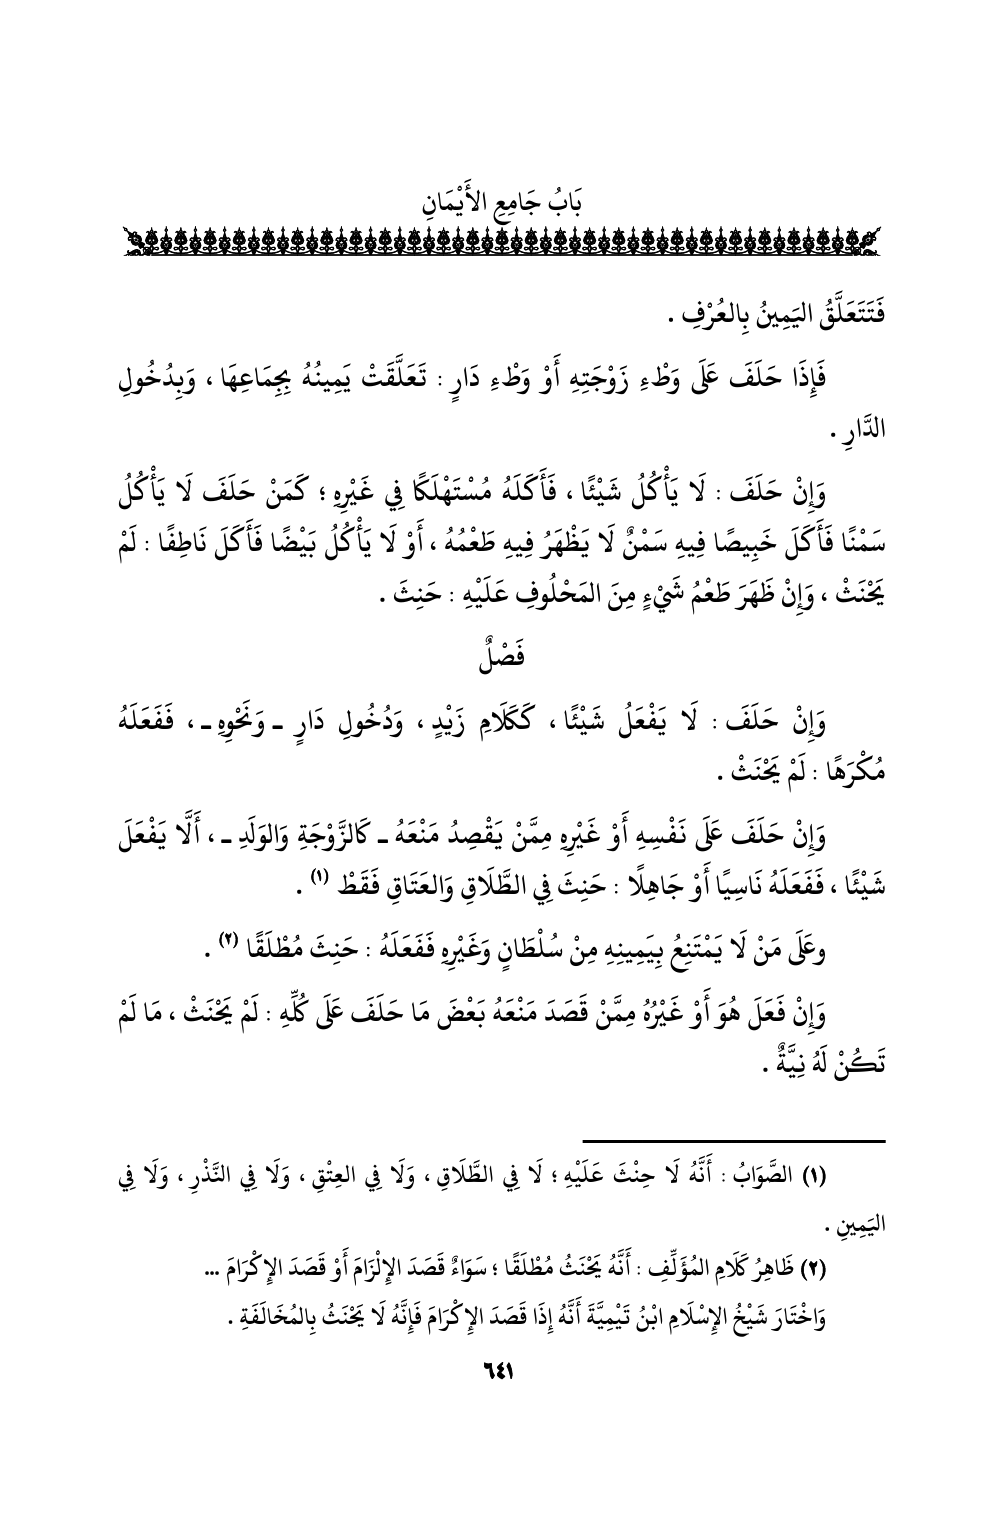 بَابُ جَامِعِ الأَيْمَانِ
فَتَتَعَلَّقُ اليَمِينُ بِالعُرْفِ .
فَإِذَا حَلَفَ عَلَى وَطْءِ زَوْجَتِهِ أَوْ وَطْءِ دَارٍ : تَعَلَّقَتْ يَمِينُهُ بِجِمَاعِهَا ، وَبِدُخُولِ
الدَّارِ .
وَإِنْ حَلَفَ : لَا يَأْكُلُ شَيْئًا ، فَأَكَلَهُ مُسْتَهْلَكًا فِي غَيْرِهِ ؛ كَمَنْ حَلَفَ لَا يَأْكُلُ
سَمْنًا فَأَكَلَ خَبِيصًا فِيهِ سَمْنٌ لَا يَظْهَرُ فِيهِ طَعْمُهُ ، أَوْ لَا يَأْكُلُ بَيْضًا فَأَكَلَ نَاطِفًا : لَمْ
يَحْنَثْ ، وَإِنْ ظَهَرَ طَعْمُ شَيْءٍ مِنَ المَحْلُوفِ عَلَيْهِ : حَنِثَ .
فَصْلٌ
وَإِنْ حَلَفَ : لَا يَفْعَلُ شَيْئًا ، كَكَلَامِ زَيْدٍ ، وَدُخُولِ دَارٍ ـ وَنَحْوِهِ ـ ، فَفَعَلَهُ
مُكْرَهًا : لَمْ يَحْنَثْ .
وَإِنْ حَلَفَ عَلَى نَفْسِهِ أَوْ غَيْرِهِ مِمَّنْ يَقْصِدُ مَنْعَهُ ـ كَالزَّوْجَةِ وَالوَلَدِ ـ ، أَلَّا يَفْعَلَ
شَيْئًا ، فَفَعَلَهُ نَاسِيًا أَوْ جَاهِلًا : حَنِثَ فِي الطَّلَاقِ وَالعَتَاقِ فَقَطْ (١) .
وعَلَى مَنْ لَا يَمْتَنِعُ بِيَمِينِهِ مِنْ سُلْطَانٍ وَغَيْرِهِ فَفَعَلَهُ : حَنِثَ مُطْلَقًا (٢) .
وَإِنْ فَعَلَ هُوَ أَوْ غَيْرُهُ مِمَّنْ قَصَدَ مَنْعَهُ بَعْضَ مَا حَلَفَ عَلَى كُلِّهِ : لَمْ يَحْنَثْ ، مَا لَمْ
تَكُنْ لَهُ نِيَّةٌ .
(١) الصَّوَابُ : أَنَّهُ لَا حِنْثَ عَلَيْهِ ؛ لَا فِي الطَّلَاقِ ، وَلَا فِي العِتْقِ ، وَلَا فِي النَّذْرِ ، وَلَا فِي
اليَمِينِ .
(٢) ظَاهِرُ كَلَامِ المُؤَلِّفِ : أَنَّهُ يَحْنَثُ مُطْلَقًا ؛ سَوَاءٌ قَصَدَ الإِلْزَامَ أَوْ قَصَدَ الإِكْرَامَ ...
وَاخْتَارَ شَيْخُ الإِسْلَامِ ابْنُ تَيْمِيَّةَ أَنَّهُ إِذَا قَصَدَ الإِكْرَامَ فَإِنَّهُ لَا يَحْنَثُ بِالمُخَالَفَةِ .
٦٤١